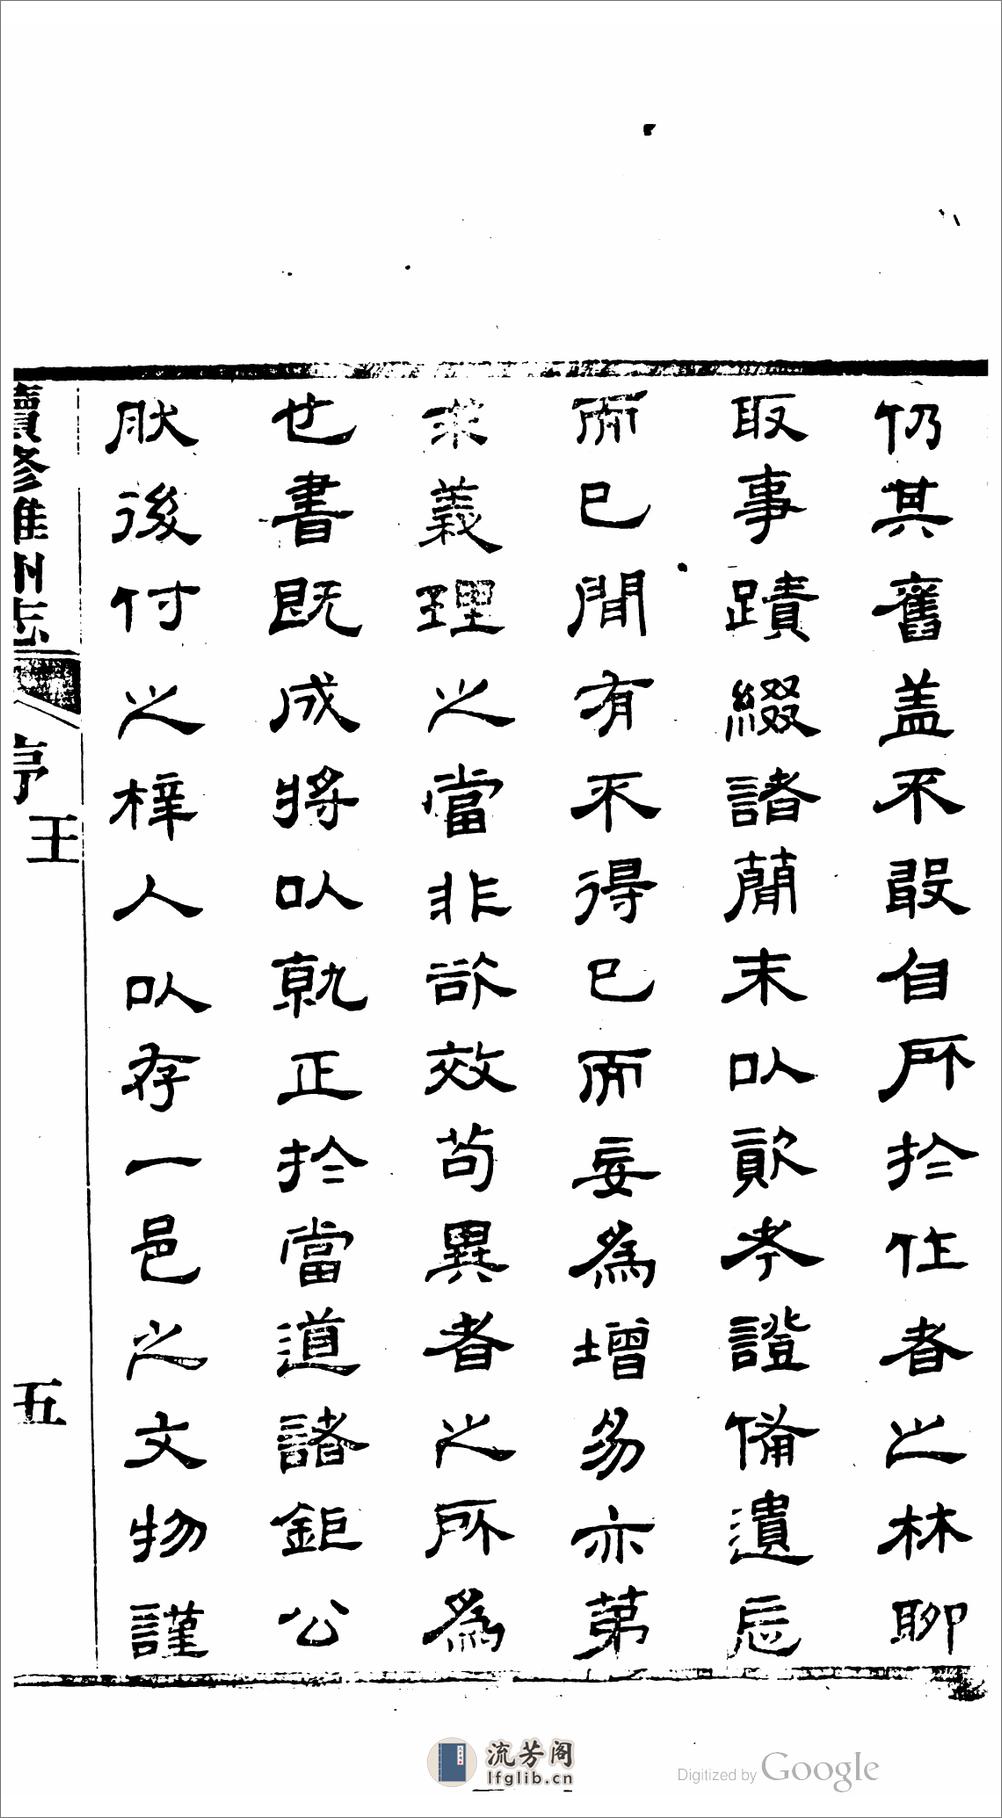 仍其舊盖不敢自所於作者之林聊
取事蹟綴諸簡末以資考證備遺忘
而已間有不得已而妄為增易亦第
求義理之當非欲效苟異者之所為
也書既成將以就正於當道諸鉅公
肰後付之梓人以存一邑之文物謹
續修睢州志
序
王
五
流芳阁
lfglib.cn
Digitized by Google